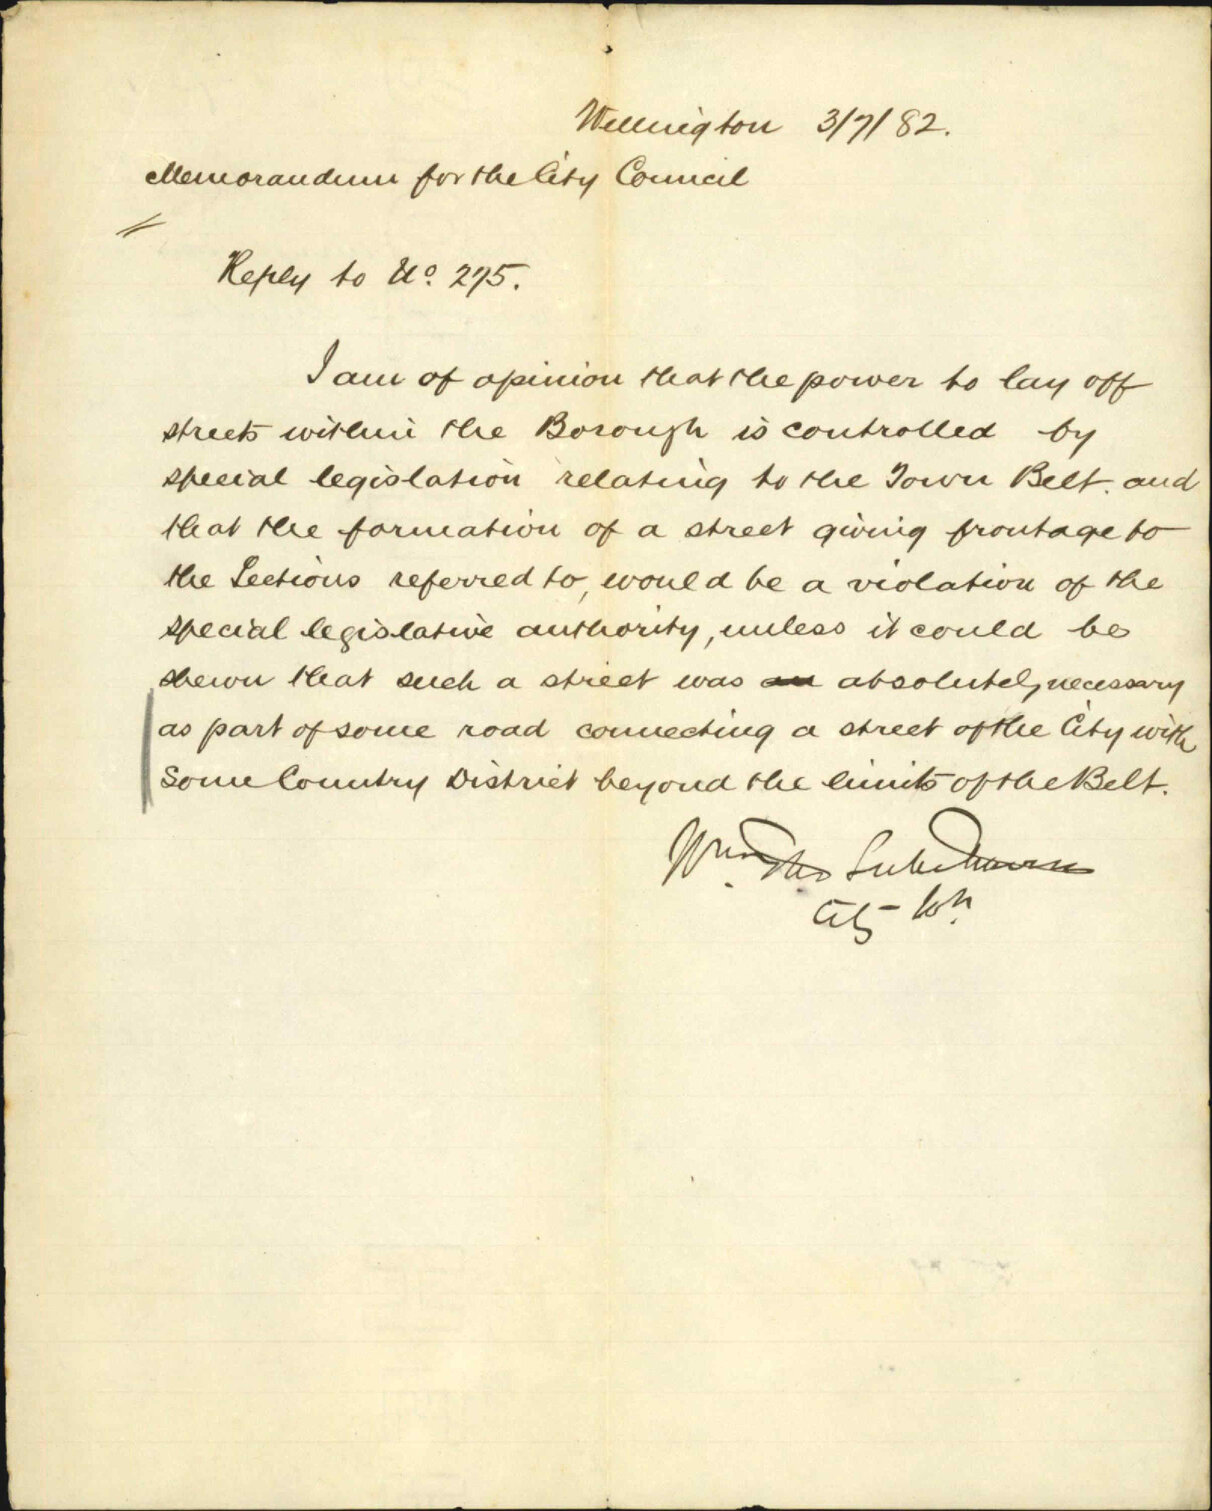 Wellington 3/7/82.
Memorandum for the City Council
Reply to No. 275.
I am of opinion that the power to lay off
streets within the Borough is controlled by
special legislation relating to the Town Belt. and
that the formation of a street giving frontage to
the Sections referred to, would be a violation of the
special legislative authority, unless it could be
shewn that such a street was an absolutely necessary
as part of some road connecting a street of the City with
some Country District beyond the limits of the Belt.
Wm. Thos
City